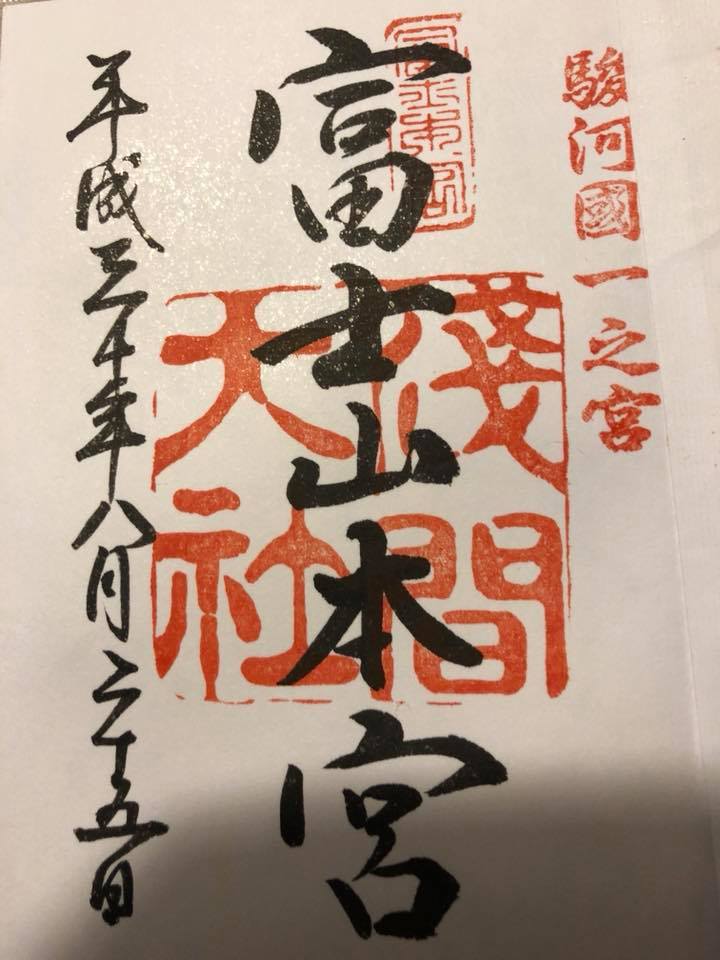 駿河國一之宮
富士山本宮
淺間大社
平成三十年八月二十五日